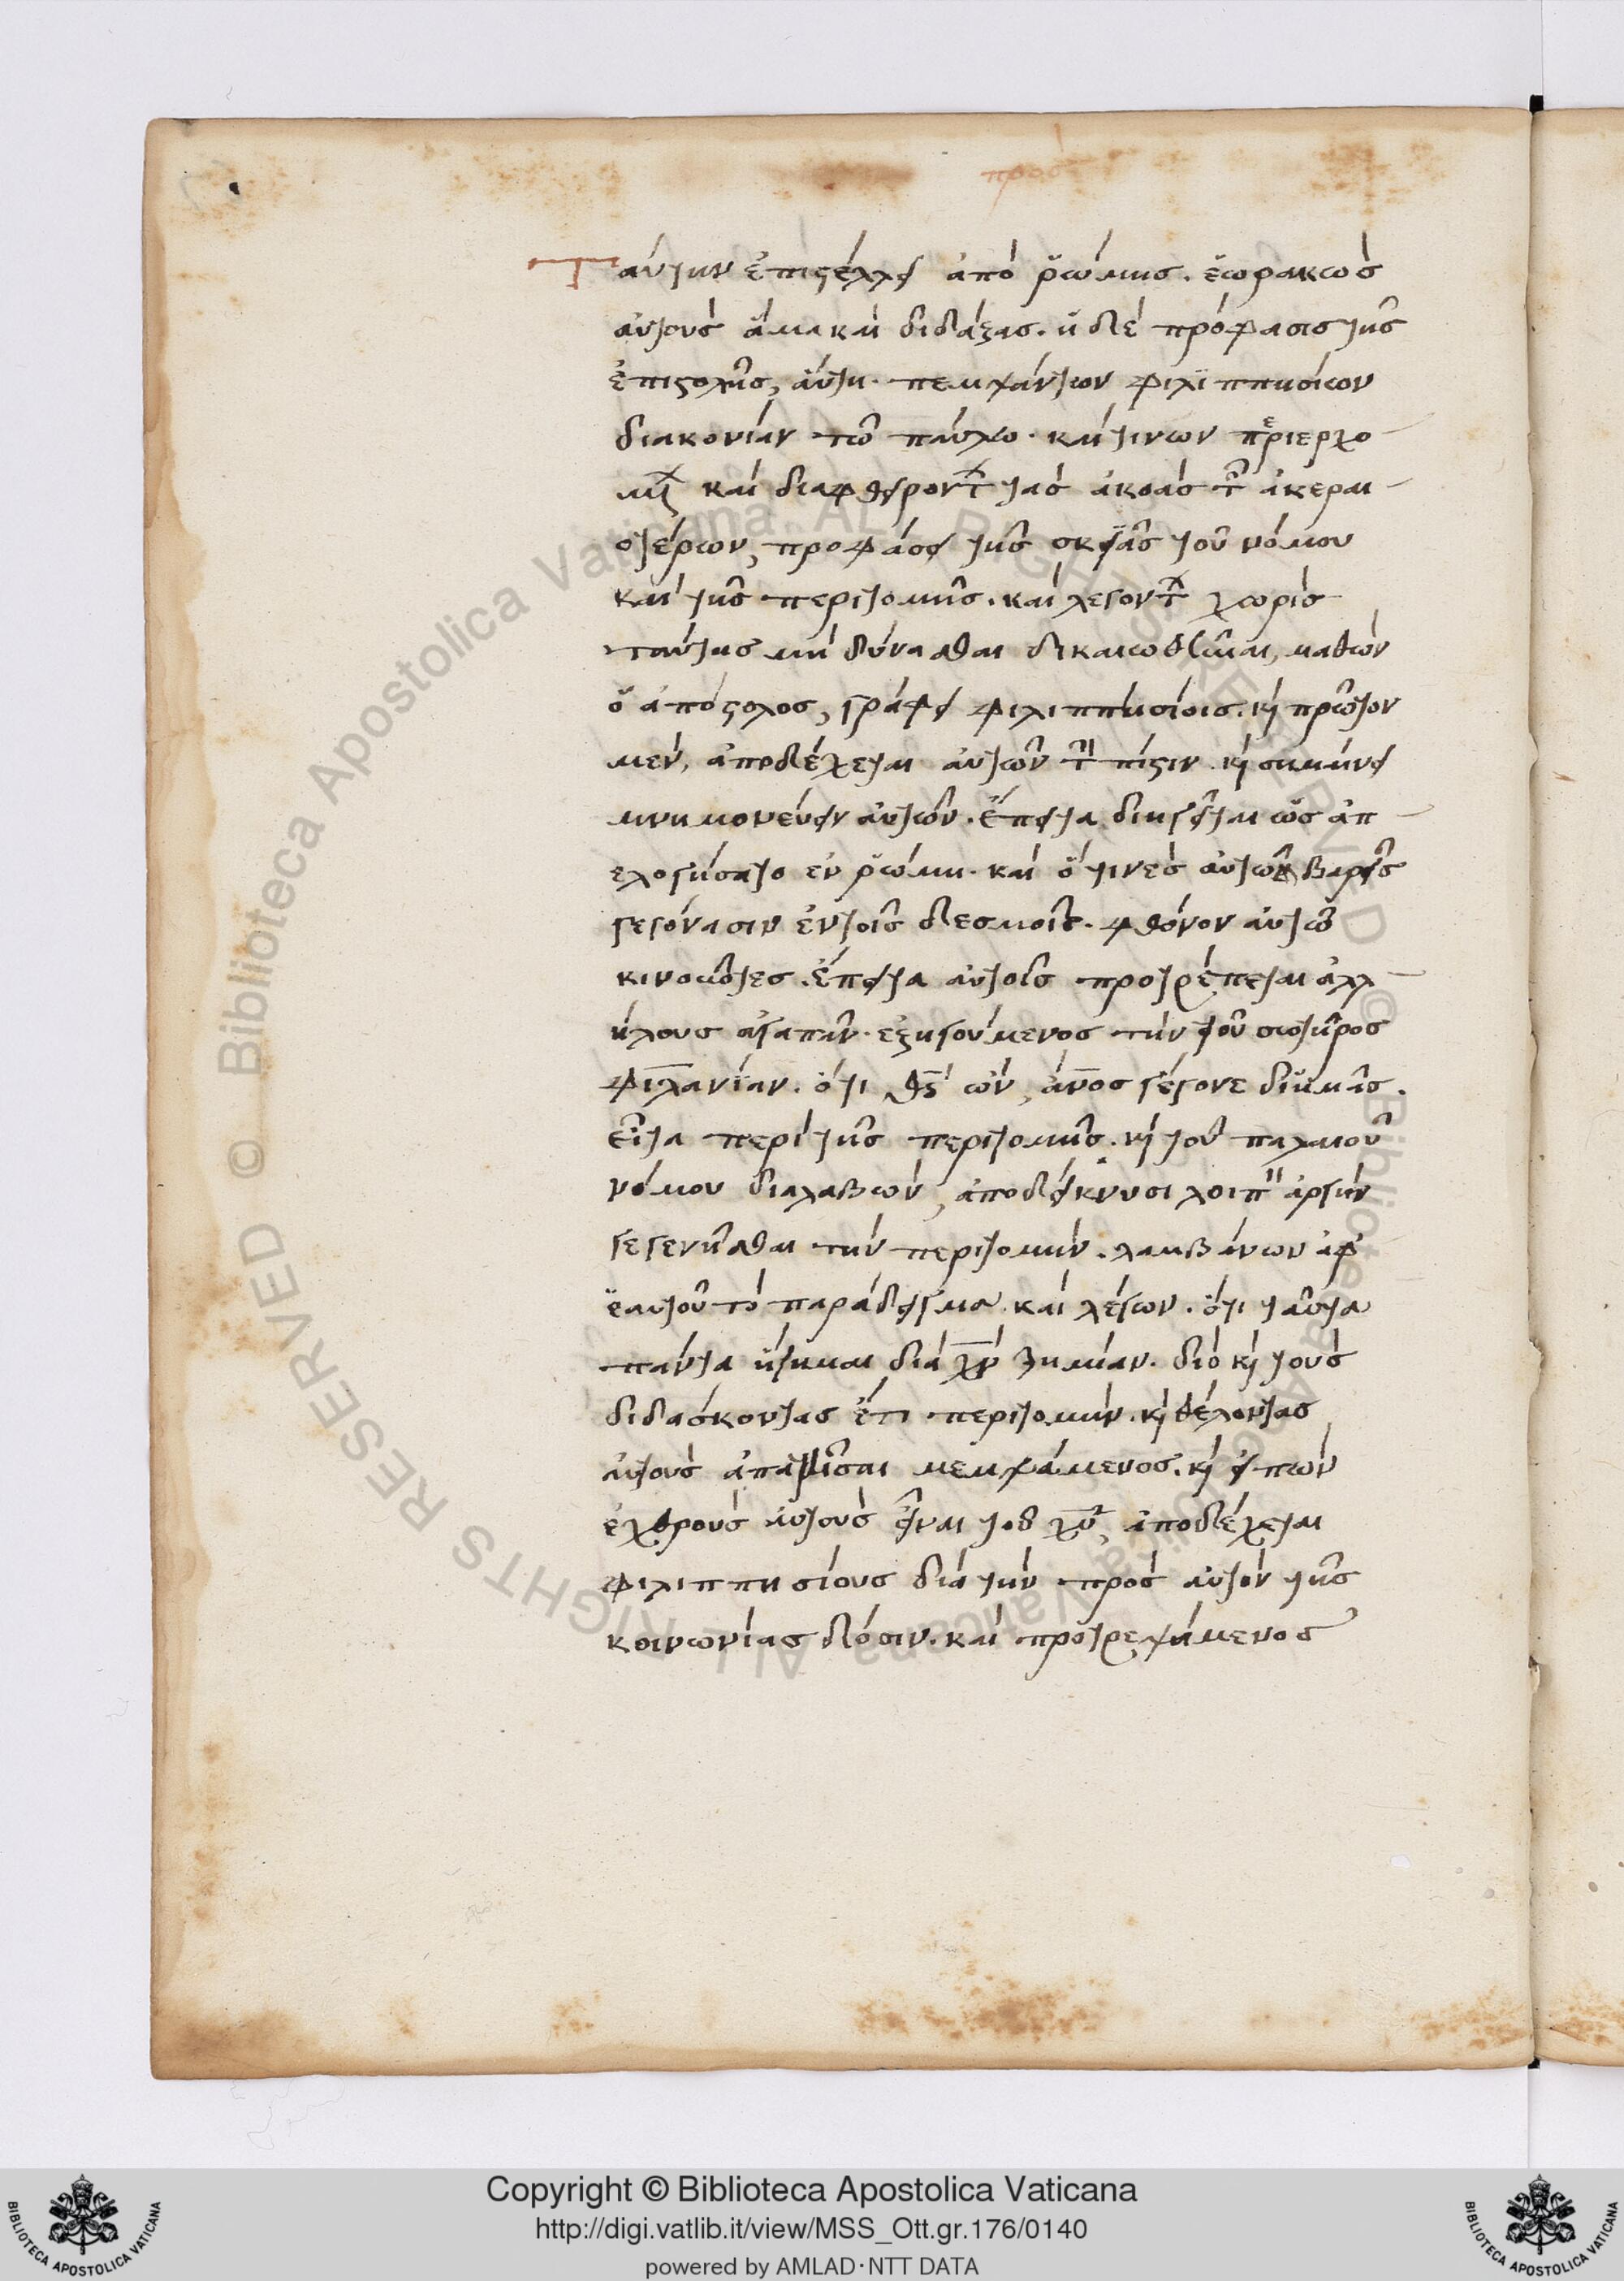 προσ
Ταύτην ἐπιστέλλει ἀπὸ ῥώμης. ἑωρακὼς
αὐτοὺς ἅμα καὶ διδάξας. ἡ δὲ πρόφασις τῆς
ἐπιστολῆς, αὕτη. πεμψάντων φιλϊππησίων
διακονίαν τῶ παύλω. καί τινων περιερχο
μ καὶ διαφθειροντ τὰς ἀκοὰς τ ἀκεραι
οτέρων, προφάσει τῆς σκιᾶς τοῦ νόμου
καὶ τῆς περιτομῆς. καὶ λεγοντ χωρὶς
ταύτης μὴ δύνασθαι δικαιωθῆναι, μαθὼν
ὁ ἀπόστολος, γράφει φιλιππησίοις. κὶ πρῶτον
μὲν, ἀποδέχεται αὐτῶν τ πίστιν. κὶ σημαίνει
μνημονεύειν αὐτῶν. ἔπειτα διηγεῖται ὡς ἀπ
ελογήσατο ἐν ῥώμη. καὶ ὅτινες αὐτῶ βαρεῖς
γεγόνασιν ἐν τοῖς δεσμοῖς. φθόνον αὐτῶ
κινοῦντες. ἔπειτα αὐτοῖς προτρέπεται ἀλλ
ήλους ἀγαπᾶν. ἐξηγούμενος τὴν τοῦ σωτῆρος
φιλανΐαν. ὅτι θς ὢν, ἄνος γέγονε δι ἡμᾶς.
εἶτα περὶ τῆς περιτομῆς. κὶ τοῦ παλαιοῦ
νόμου διαλαβὼν, ἀποδείκνυσι λοιπ ἀργὴν
γεγενῆσθαι τὴν περιτομήν. λαμβάνων ἀφ
ἑαυτοῦ τὸ παράδειγμα. καὶ λέγων. ὅτι ταῦτα
πάντα ἥγημαι διὰ χν ζημίαν. διὸ κὶ τοὺς
διδάσκοντας ἔτι περιτομήν. κὶ θέλοντας
αὐτοὺς ἀπατῆσαι μεμψάμενος. κὶ εἰπὼν
ἐχθροὺς αὐτοὺς εἶναι τοῦ χυ, ἀποδέχεται
φιλιππησίους διὰ τὴν πρὸς αὐτὸν τῆς
κοινωνίας δόσιν. καὶ προτρεψάμενος
Copyright © Biblioteca Apostolica Vaticana
http://digi.vatlib.it/view/MSS_Ott.gr.176/0140
powered by AMLAD·NTT DATA
BIBLIOTECA APOSTOLICA VATICANA
BIBLIOTECA APOSTOLICA VATICANA
© Biblioteca Apostolica Vaticana ALL RIGHTS RESERVED © Biblioteca Apostolica Vaticana ALL RIGHTS RESERVED